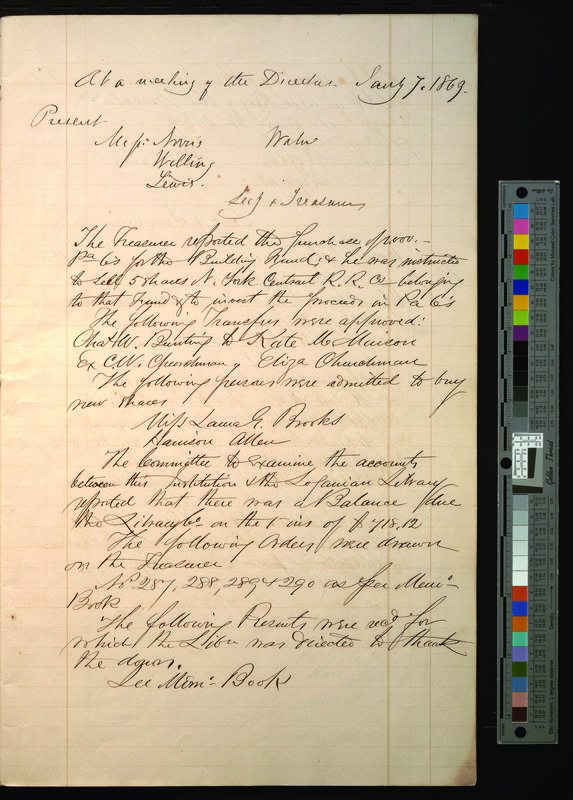 At a meeting of the Directors Jany 7, 1869.
Present
Messrs Norris Waln
Willing
Lewis.
Secy & Treasurer
The Treasurer reported the purchase of
Pa 6's for the Building Fund; & he was instructed
to sell 5 shares N. York Central R. R. Co belonging
to that Fund & to invest the proceeds in Pa 6's
The following Transfers were approved:
Chas W. Bunting to Kate M.
Ex C.W. Churchman, Eliza Churchman
The following persons were admitted to buy
new shares
Miss Laura G. Brooks
Harrison Allen
The Committee to Examine the accounts
between this Institution & the Loganian Library
reported that there was a Balance due
the Library Co on the 1 ins of $718,12
The following Orders were drawn
on the Treasurer
No 287, 288, 289 & 290 as per Mem:
Book
The following Presents were recd for
which the Libn was directed to thank
the donors.
See Mem: Book